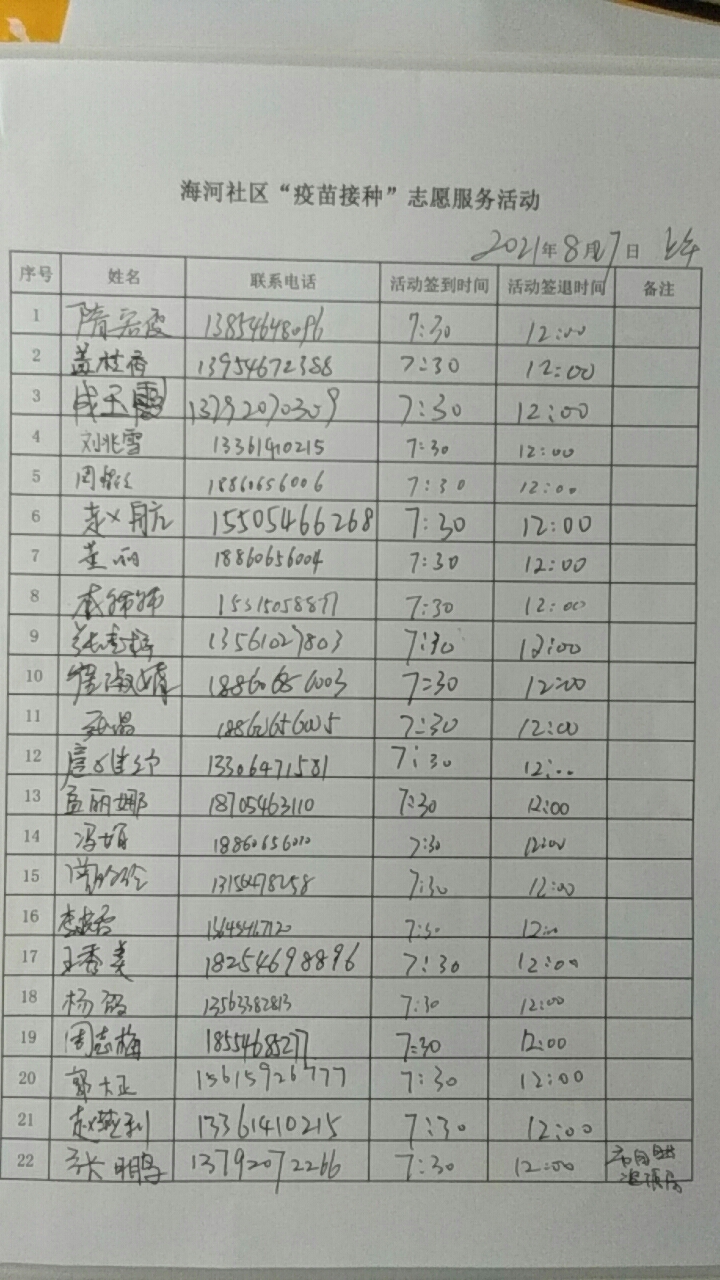 海河社区“疫苗接种”志愿服务活动
2021年8月7日 上午
序号 姓名 联系电话 活动签到时间 活动签退时间 备注
1 隋 霞 13854648096 7:30 12:00
2 盖桂香 13954672388 7:30 12:00
3 成玉霞 13792070309 7:30 12:00
4 刘兆雪 13361410215 7:30 12:00
5 周 18860656006 7:30 12:00
6 赵义航 15505466268 7:30 12:00
7 董丽 18860656004 7:30 12:00
8 李师师 15315058877 7:30 12:00
9 张 13561027803 7:30 12:00
10 崔淑婧 18860656003 7:30 12:00
11 18860656005 7:30 12:00
12 13306471581 7:30 12:00
13 孟丽娜 18705463110 7:30 12:00
14 冯娟 18860656010 7:30 12:00
15 13156478258 7:30 12:00
16 李 7:30 12:00
17 王秀美 18254698896 7:30 12:00
18 杨 13563382813 7:30 12:00
19 周志梅 18554685277 7:30 12:00
20 郭大正 15615926777 7:30 12:00
21 赵 利 13361410215 7:30 12:00
22 张明鹏 13792072266 7:30 12:00